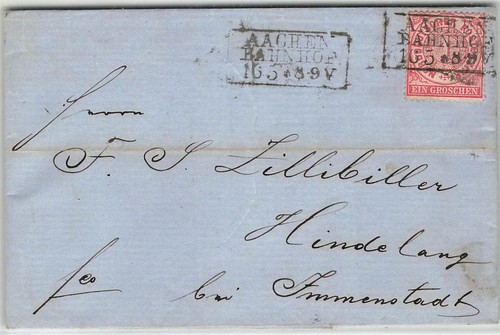 AACHEN
BAHNHOF
16 5 * 8-9V
AACHEN
BAHNHOF
16 5 * 8-9V
EIN GROSCHEN
Herrn
F. S. Zillibiller
Hindelang
fco bei Immenstadt